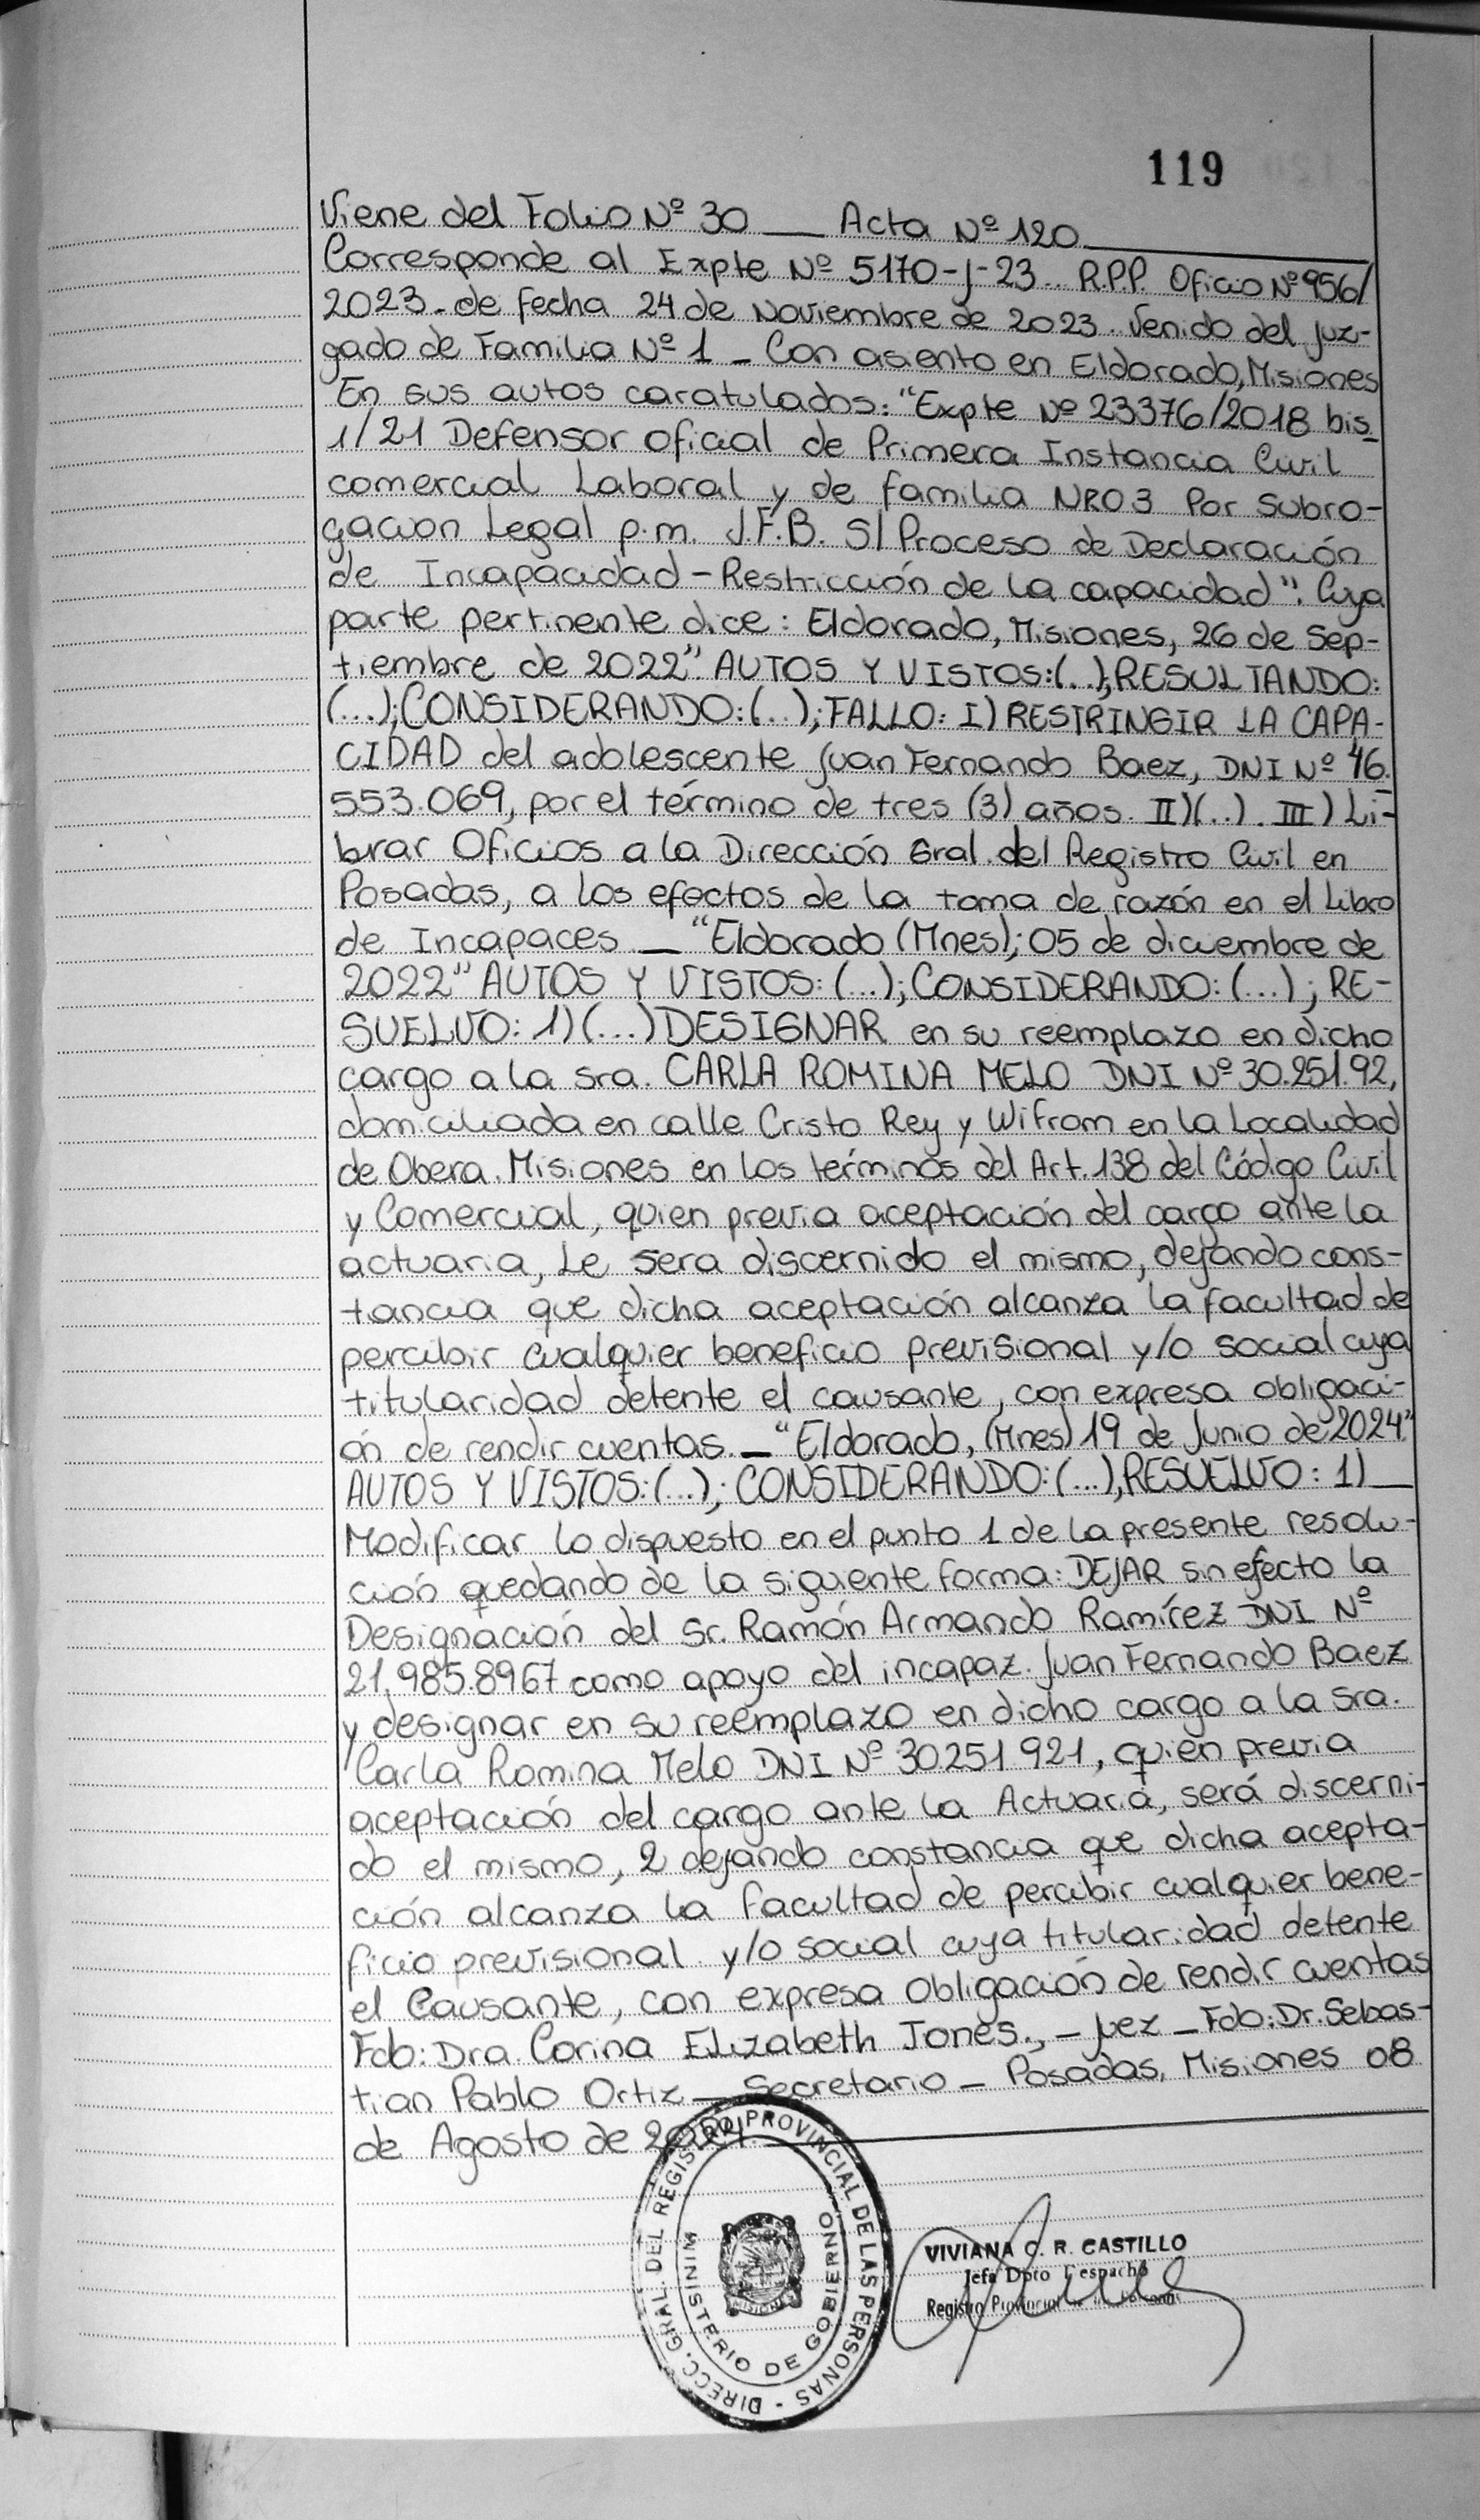 119
Viene del Folio Nº 30 __ Acta Nº 120
Corresponde al Expte Nº 5170-J-23.. R.P.P. Oficio Nº 956/
2023.-de fecha 24 de Noviembre de 2023. Venido del Juz-
gado de Familia Nº 1 _ Con asiento en Eldorado, Misiones
En sus autos caratulados: "Expte Nº 23376/2018 bis_
1/21 Defensor oficial de Primera Instancia Civil
comercial Laboral y de familia NRO 3 Por Subro-
gacion Legal p.m. J.F.B. S/ Proceso de Declaración
de Incapacidad - Restricción de la capacidad". Cuya
parte pertinente dice: Eldorado, Misiones, 26 de Sep-
tiembre de 2022" AUTOS Y VISTOS:(...);RESULTANDO:
(...);CONSIDERANDO:(...);FALLO: I) RESTRINGIR LA CAPA-
CIDAD del adolescente Juan Fernando Baez, DNI Nº 46.
553.069, por el término de tres (3) años. II)(..). III) Li-
brar Oficios a la Dirección Gral. del Registro Civil en
Posadas, a los efectos de la toma de razón en el Libro
de Incapaces _ "Eldorado (Mnes); 05 de diciembre de
2022" AUTOS Y VISTOS: (...); CONSIDERANDO: (...); RE-
SUELVO: 1) (...) DESIGNAR en su reemplazo en dicho
cargo a la sra. CARLA ROMINA MELO DNI Nº 30.251.92,
domiciliada en calle Cristo Rey y Wifrom en la Localidad
de Obera. Misiones en los términos del Art. 138 del Código Civil
y Comercial, quien previa aceptación del cargo ante la
actuaria, Le sera discernido el mismo, dejando cons-
tancia que dicha aceptación alcanza la facultad de
percibir cualquier beneficio previsional y/o social cuya
titularidad detente el causante, con expresa obligaci-
ón de rendir cuentas._ "Eldorado, (Mnes) 19 de Junio de 2024"
AUTOS Y VISTOS:(...); CONSIDERANDO:(...), RESUELVO: 1)__
Modificar lo dispuesto en el punto 1 de la presente resolu-
ción quedando de la siguiente forma: DEJAR sin efecto la
Designación del Sr. Ramón Armando Ramírez DNI Nº
21.985.8967 como apoyo del incapaz. Juan Fernando Baez
y designar en su reemplazo en dicho cargo a la sra.
Carla Romina Melo DNI Nº 30251921, quien previa
aceptación del cargo ante la Actuaria, será discerni-
do el mismo, 2 dejando constancia que dicha acepta-
ción alcanza la facultad de percibir cualquier bene-
ficio previsional y/o social cuya titularidad detente
el Causante, con expresa obligación de rendir cuentas
Fdo: Dra. Corina Elizabeth Jones., - Juez - Fdo: Dr. Sebas-
tian Pablo Ortiz _ Secretario _ Posadas, Misiones 08
de Agosto de 2024.
DIRECC. GRAL. DEL REGISTRO PROVINCIAL DE LAS PERSONAS -
MINISTERIO DE GOBIERNO
MISIONES
VIVIANA C. R. CASTILLO
Jefa Dpto Despacho
Registro Provincial de las Personas